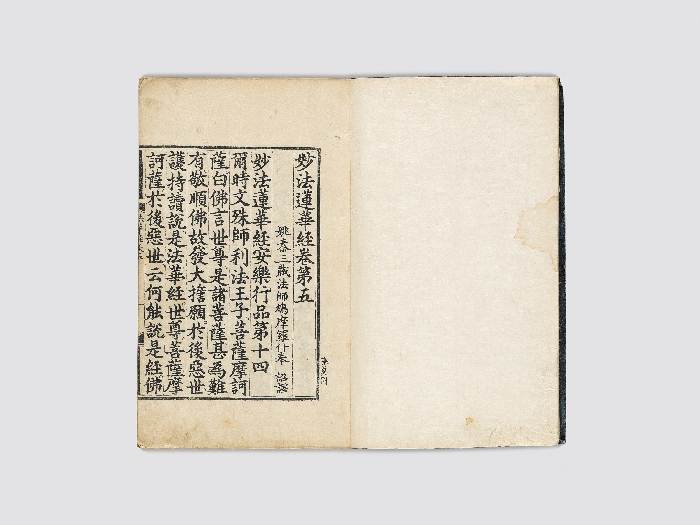 妙法蓮華經卷第五
姚秦三藏法師鳩摩羅什奉 詔譯
妙法蓮華經安樂行品第十四
爾時文殊師利法王子菩薩摩訶
薩白佛言世尊是諸菩薩甚為難
有敬順佛故發大誓願於後惡世
護持讀說是法華經世尊菩薩摩
訶薩於後惡世云何能說是經佛